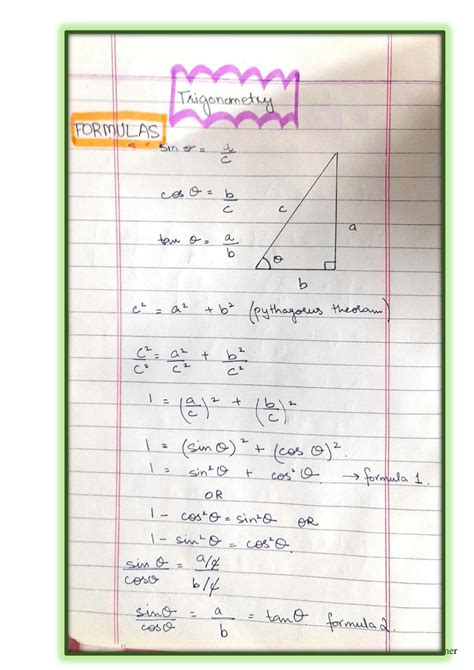 Trigonometry
FORMULAS
sin θ = a/c
cos θ = b/c
tan θ = a/b
c
a
θ
b
c² = a² + b² (pythagorus theoram)
c²/c² = a²/c² + b²/c²
1 = (a/c)² + (b/c)²
1 = (sin θ)² + (cos θ)².
1 = sin²θ + cos²θ. → formula 1.
OR
1 - cos²θ = sin²θ OR
1 - sin²θ = cos²θ.
sin θ/cosθ = a/c/b/c
sinθ/cosθ = a/b = tanθ formula 2.
ner